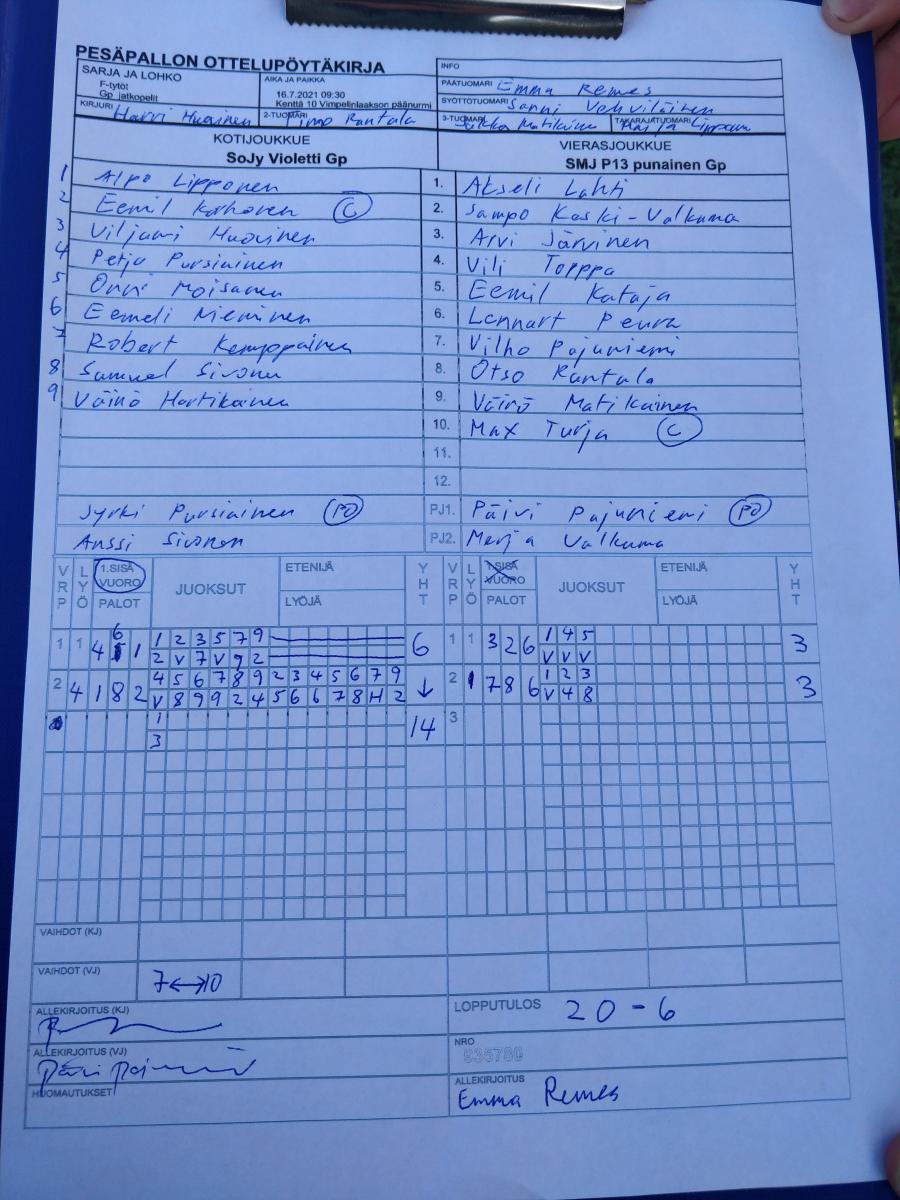 PESÄPALLON OTTELUPÖYTÄKIRJA
INFO
SARJA JA LOHKO
F-tytöt
Gp jatkopelit
AIKA JA PAIKKA
16.7.2021 09:30
Kenttä 10 Vimpelinlaakson päänurmi
PÄÄTUOMARI Emma Remes
SYÖTTÖTUOMARI Sanni Vehviläinen
KIRJURI Harri Huovinen
2-TUOMARI Timo Rantala
3-TUOMARI Matikainen
TAKARAJATUOMARI Lipponen
KOTIJOUKKUE
SoJy Violetti Gp
VIERASJOUKKUE
SMJ P13 punainen Gp
1 Alpo Lipponen 1. Akseli Lahti
2 Eemil Korhonen C 2. Sampo Koski-Valkama
3 Viljami Huovinen 3. Arvi Järvinen
4 Petja Pursiainen 4. Vili Torppa
5 Onni Moisanen 5. Eemil Kataja
6 Eemeli Nieminen 6. Lennart Peura
7 Robert Kemppainen 7. Vilho Pajuniemi
8 Samuel Sivonen 8. Otso Rantala
9 Väinö Hartikainen 9. Väinö Matikainen
10. Max Turja C
11.
12.
Jyrki Pursiainen PJ1. Päivi Pajuniemi
Anssi Sivonen PJ2. Merja Valkama
VRP LYÖ 1.SISÄ VUORO PALOT JUOKSUT ETENIJÄ LYÖJÄ YHT VRP LYÖ 1.SISÄ VUORO PALOT JUOKSUT ETENIJÄ LYÖJÄ YHT
1 1 4 6 1 1 2 3 5 7 9 6 1 1 3 2 6 1 4 5 3
2 V 7 V 9 2 V V V
2 4 1 8 2 4 5 6 7 8 9 2 3 4 5 6 7 9 ↓ 2 1 7 8 6 1 2 3 3
V 8 9 9 2 4 5 6 6 7 8 H 2 V 4 8
1 14 3
3
VAIHDOT (KJ)
VAIHDOT (VJ) 7↔10
ALLEKIRJOITUS (KJ)
LOPPUTULOS 20-6
ALLEKIRJOITUS (VJ)
NRO
935780
HUOMAUTUKSET
ALLEKIRJOITUS
Emma Remes